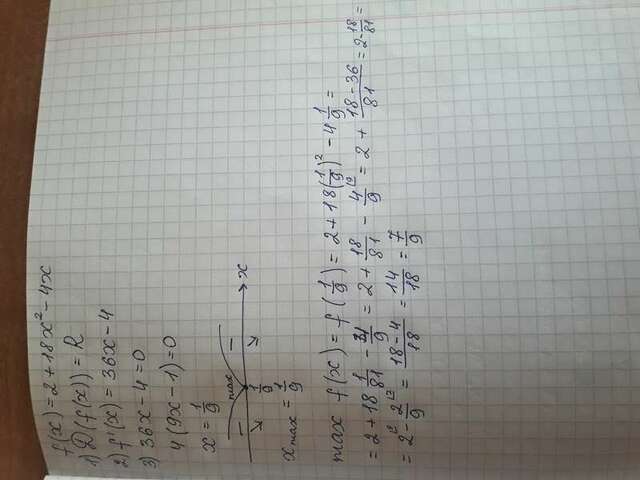 f(x) = 2 + 18x² - 4x
1) D(f(x)) = R
2) f'(x) = 36x - 4
3) 36x - 4 = 0
4(9x - 1) = 0
x = 1/9
max
- -
1/9 x
x max = 1/9
max f(x) = f(1/9) = 2 + 18(1/9)² - 4 1/9 =
= 2 + 18 1/81 - 4/9 = 2 + 18/81 - 4/9 = 2 + (18 - 36)/81 = 2 - 18/81 =
= 2 - 2/9 = (18 - 4)/18 = 14/18 = 7/9